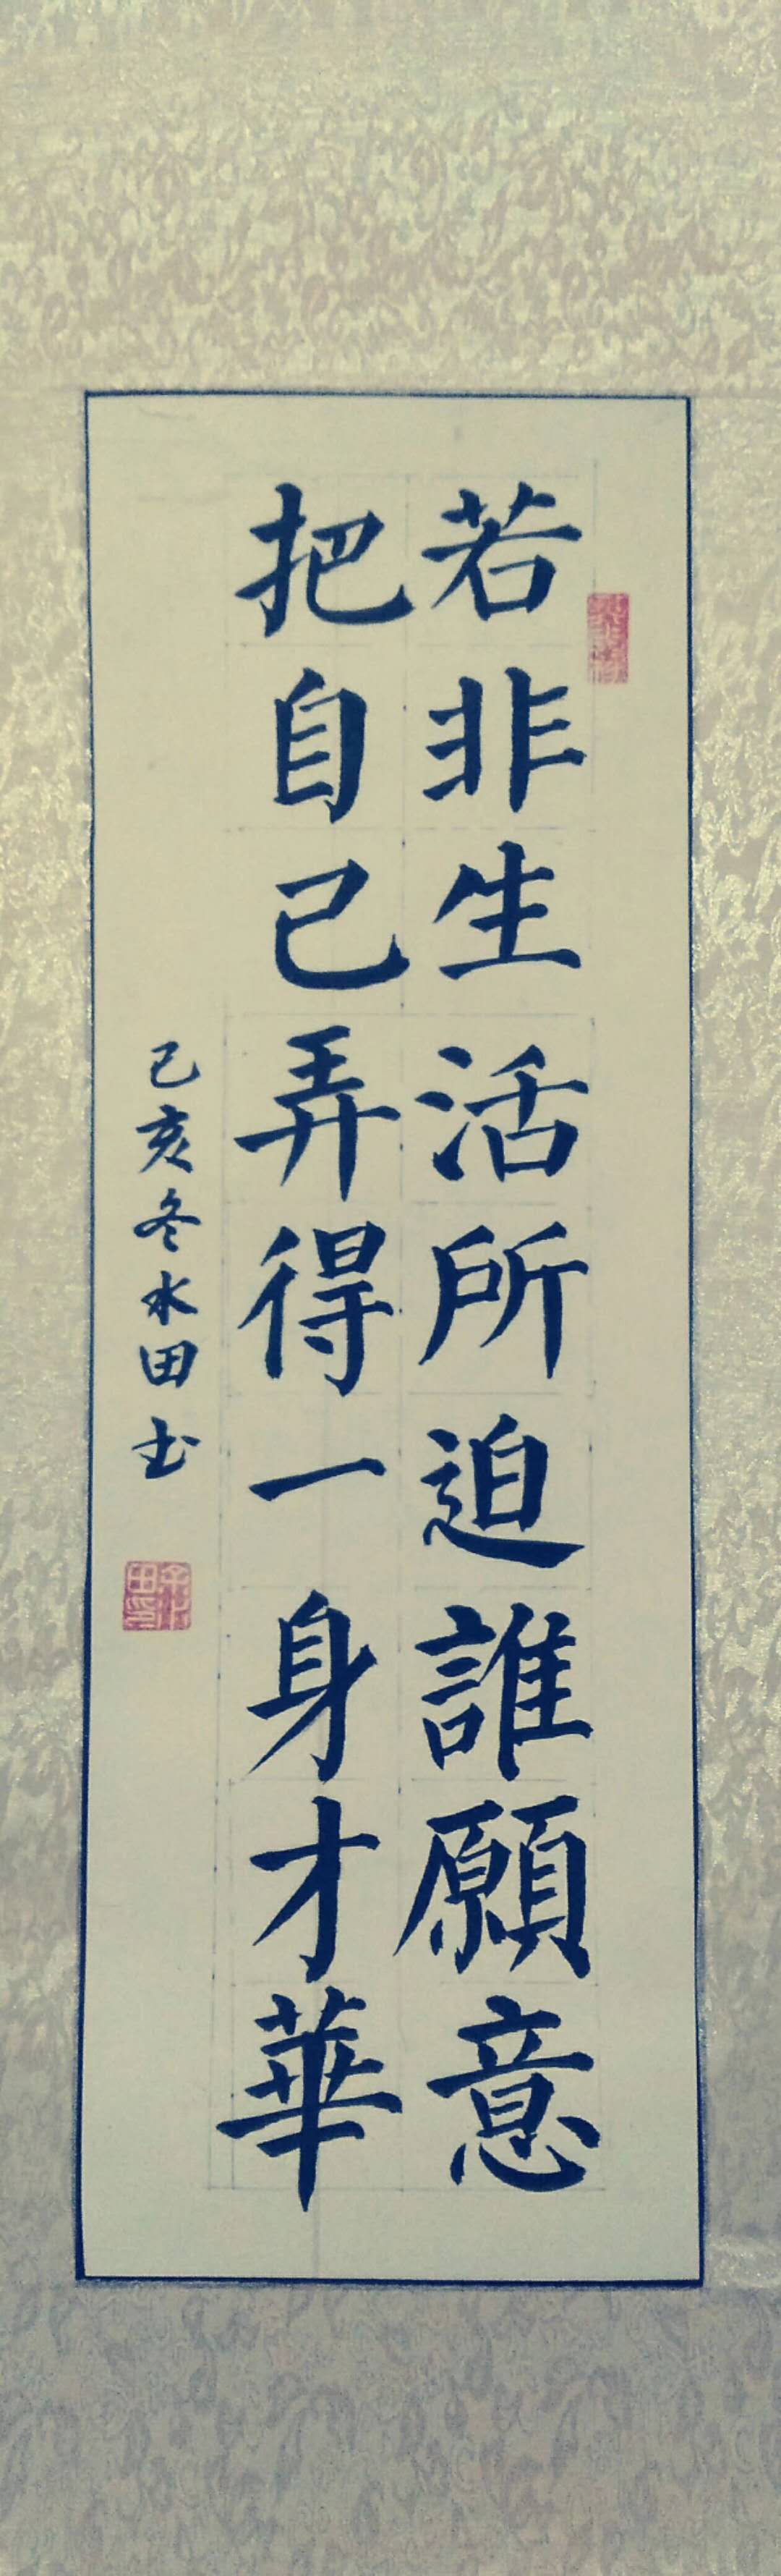 若非生活所迫誰願意
把自己弄得一身才華
己亥冬水田书